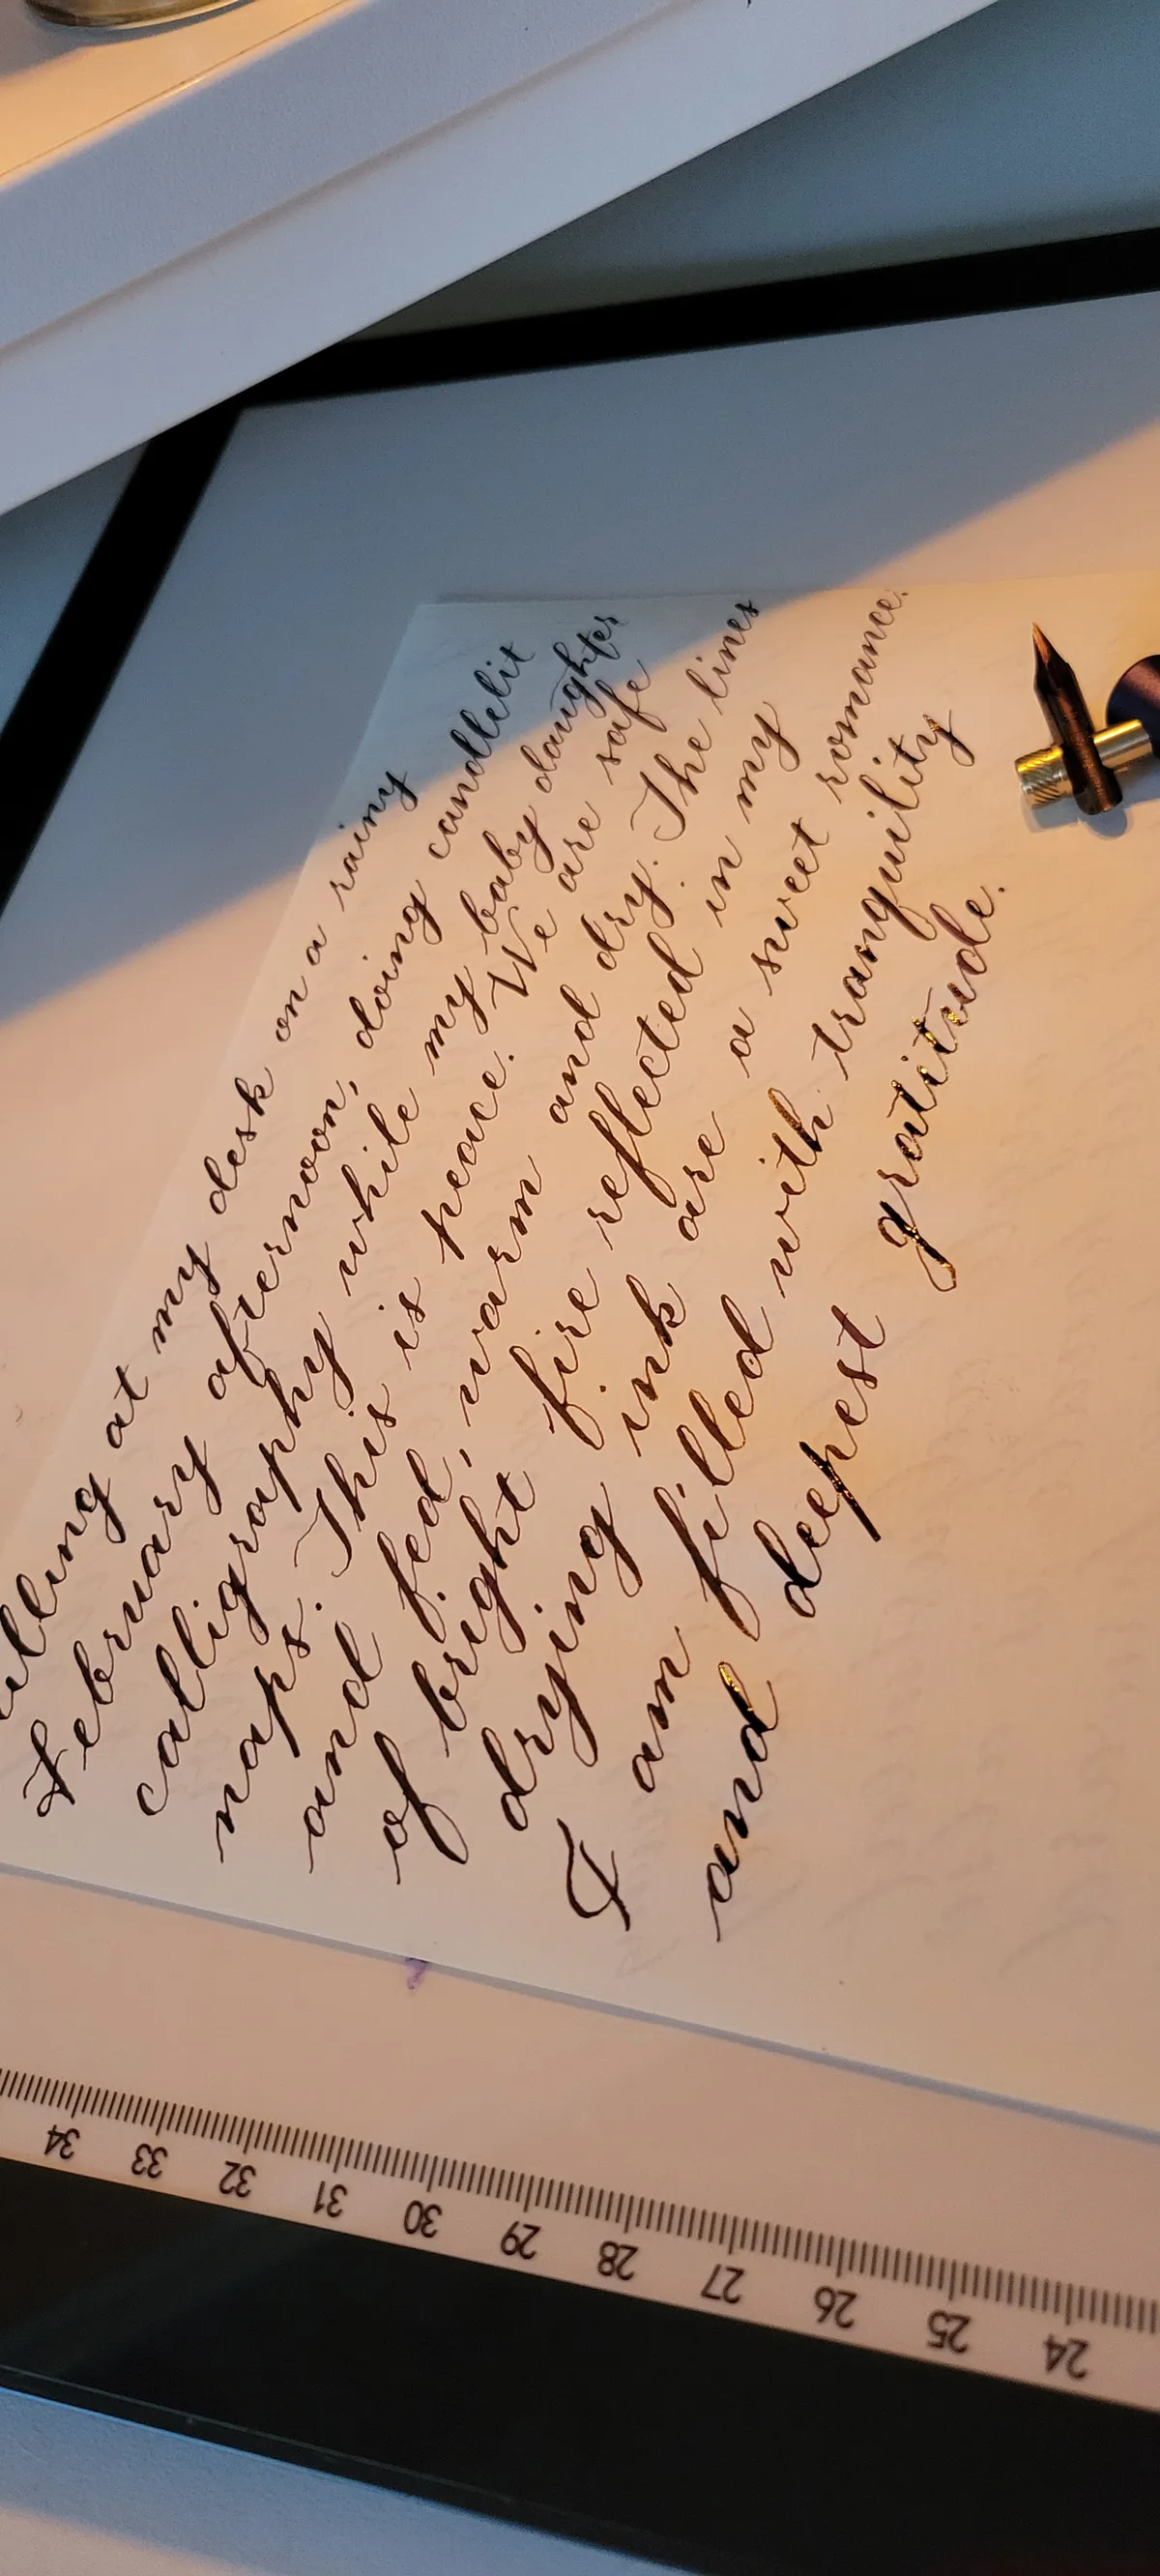 at my desk on a rainy
February afternoon, doing candlelit
calligraphy while my baby daughter
naps. This is peace. We are safe
and fed, warm and dry. The lines
of bright fire reflected in my
drying ink are a sweet romance.
I am filled with tranquility
and deepest gratitude.
34 33 32 31 30 29 28 27 26 25 24